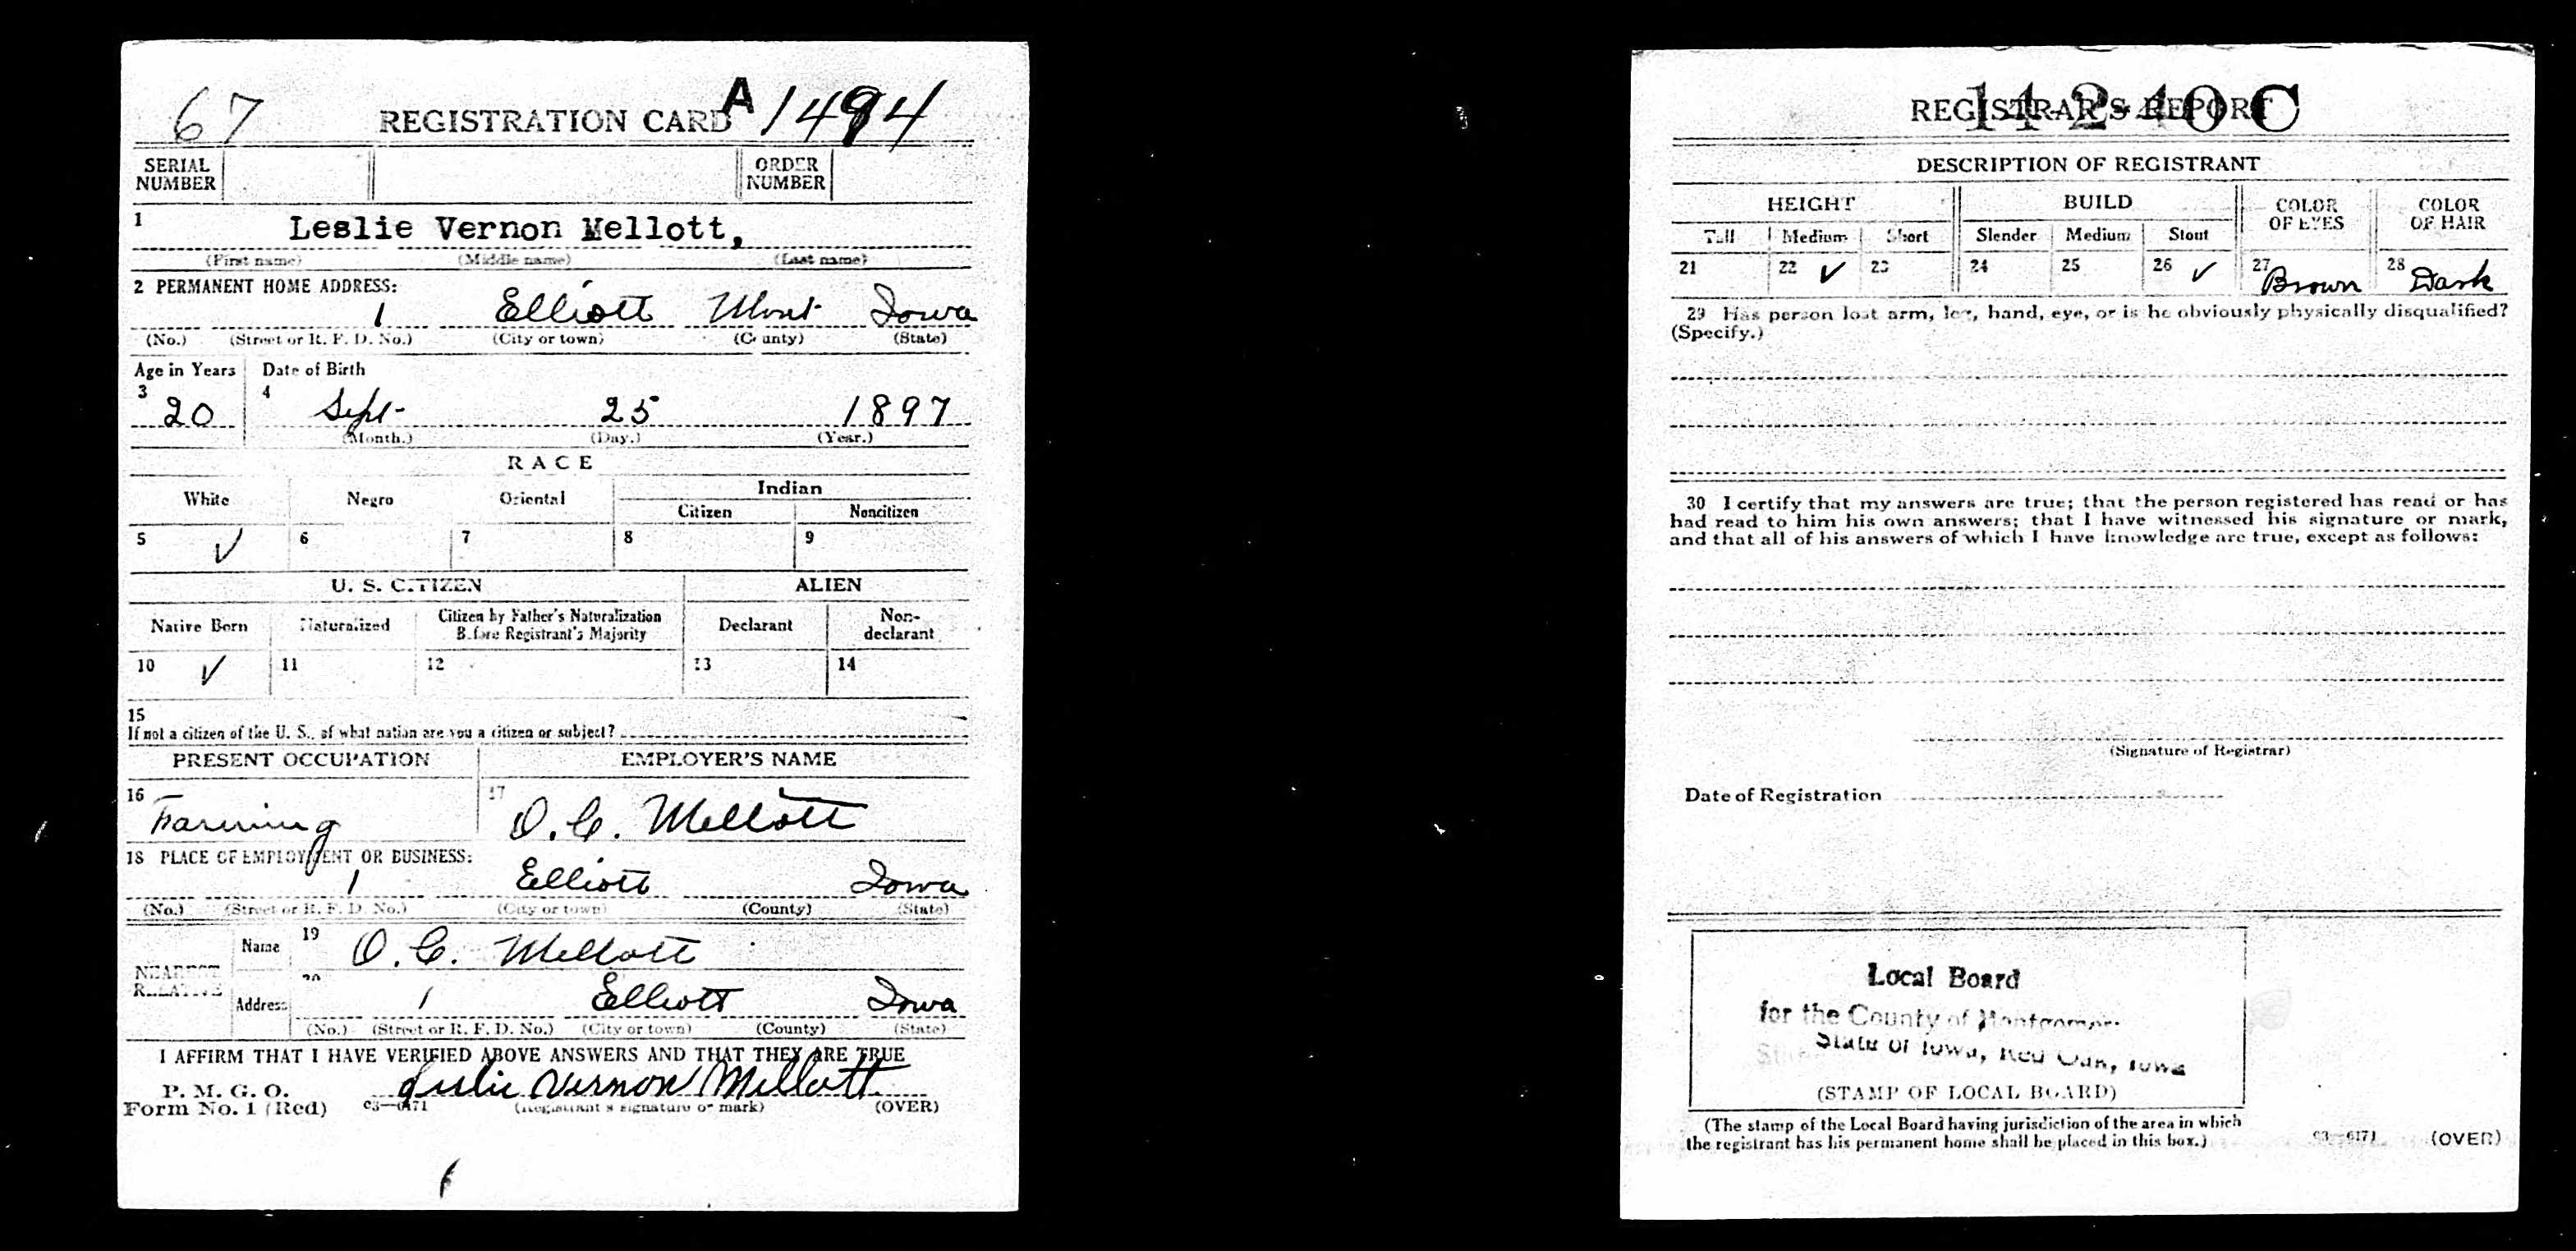 67 REGISTRATION CARD A 1494
SERIAL NUMBER ORDER NUMBER
1 Leslie Vernon Mellott,
(First name) (Middle name) (Last name)
2 PERMANENT HOME ADDRESS:
1 Elliott Mont Iowa
(No.) (Street or R. F. D. No.) (City or town) (County) (State)
Age in Years Date of Birth
3 20 4 Sept- 25 1897
(Month.) (Day.) (Year.)
RACE
White Negro Oriental Indian
Citizen Noncitizen
5 ✓ 6 7 8 9
U. S. CITIZEN ALIEN
Native Born Naturalized Citizen by Father's Naturalization Before Registrant's Majority Declarant Non-declarant
10 ✓ 11 12 13 14
15
If not a citizen of the U. S., of what nation are you a citizen or subject?
PRESENT OCCUPATION EMPLOYER'S NAME
16 Farming 17 O. C. Mellott
18 PLACE OF EMPLOYMENT OR BUSINESS:
1 Elliott Iowa
(No.) (Street or R. F. D. No.) (City or town) (County) (State)
NEAREST RELATIVE
Name 19 O. C. Mellott
Address 20 1 Elliott Iowa
(No.) (Street or R. F. D. No.) (City or town) (County) (State)
I AFFIRM THAT I HAVE VERIFIED ABOVE ANSWERS AND THAT THEY ARE TRUE
P. M. G. O. Leslie Vernon Mellott
Form No. 1 (Red) 03—6171 (Registrant's signature or mark) (OVER)
REGISTRAR'S REPORT
14-2-40 C
DESCRIPTION OF REGISTRANT
HEIGHT BUILD COLOR OF EYES COLOR OF HAIR
Tall Medium Short Slender Medium Stout
21 22 ✓ 23 24 25 26 ✓ 27 Brown 28 Dark
29 Has person lost arm, leg, hand, eye, or is he obviously physically disqualified?
(Specify.)
30 I certify that my answers are true; that the person registered has read or has
had read to him his own answers; that I have witnessed his signature or mark,
and that all of his answers of which I have knowledge are true, except as follows:
(Signature of Registrar)
Date of Registration
Local Board
for the County of Montgomery
State of Iowa, Red Oak, Iowa
(STAMP OF LOCAL BOARD)
(The stamp of the Local Board having jurisdiction of the area in which
the registrant has his permanent home shall be placed in this box.) 03—6171 (OVER)